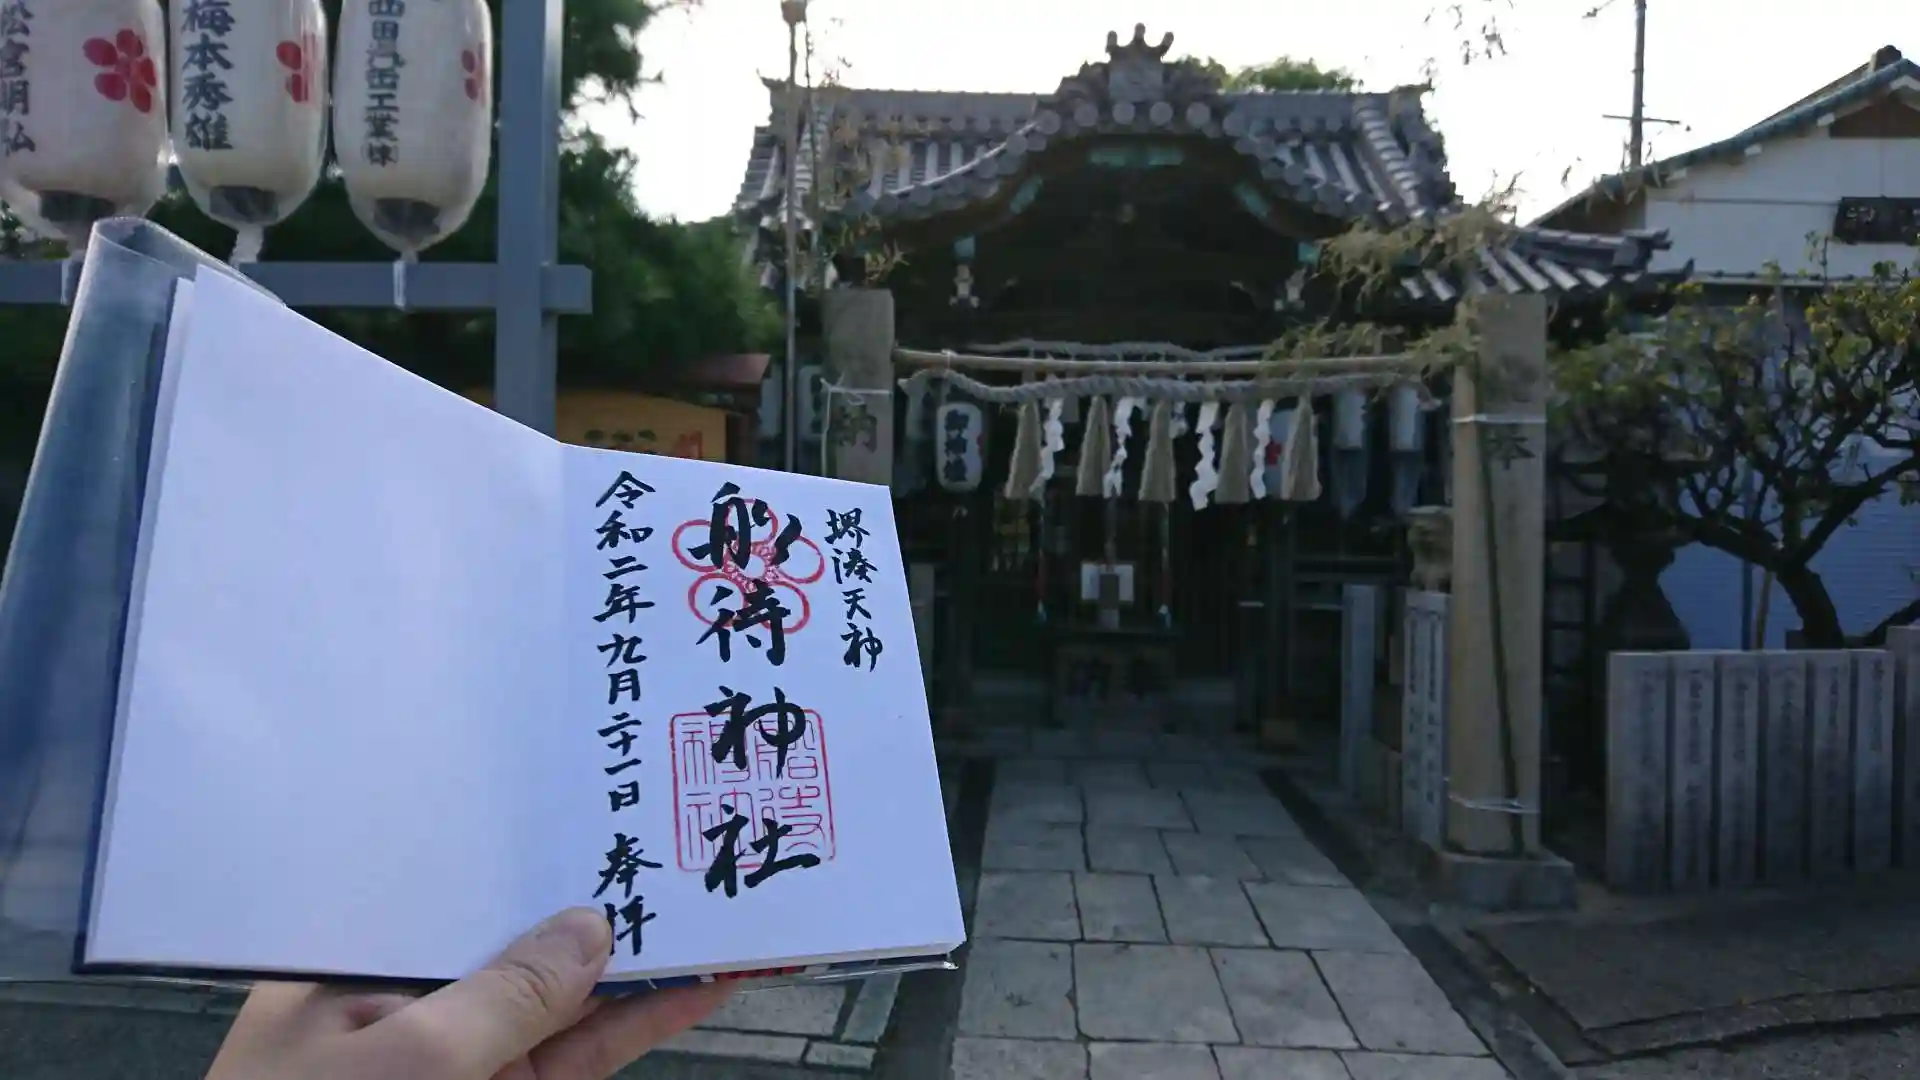 堺湊天神
船待神社
令和二年九月二十一日 奉拝
船待神社
松宮明弘
梅本秀雄
西田汽缶工業㈱
御神燈
奉
納
奉納